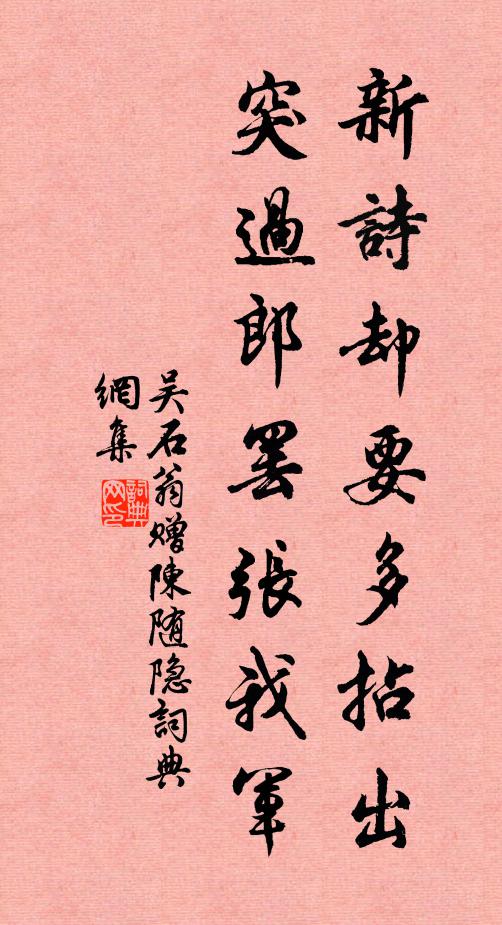 新詩却要多拈出
突過郎罷張我軍
吴石翁贈陳随隐詞典
網集
詞典網印